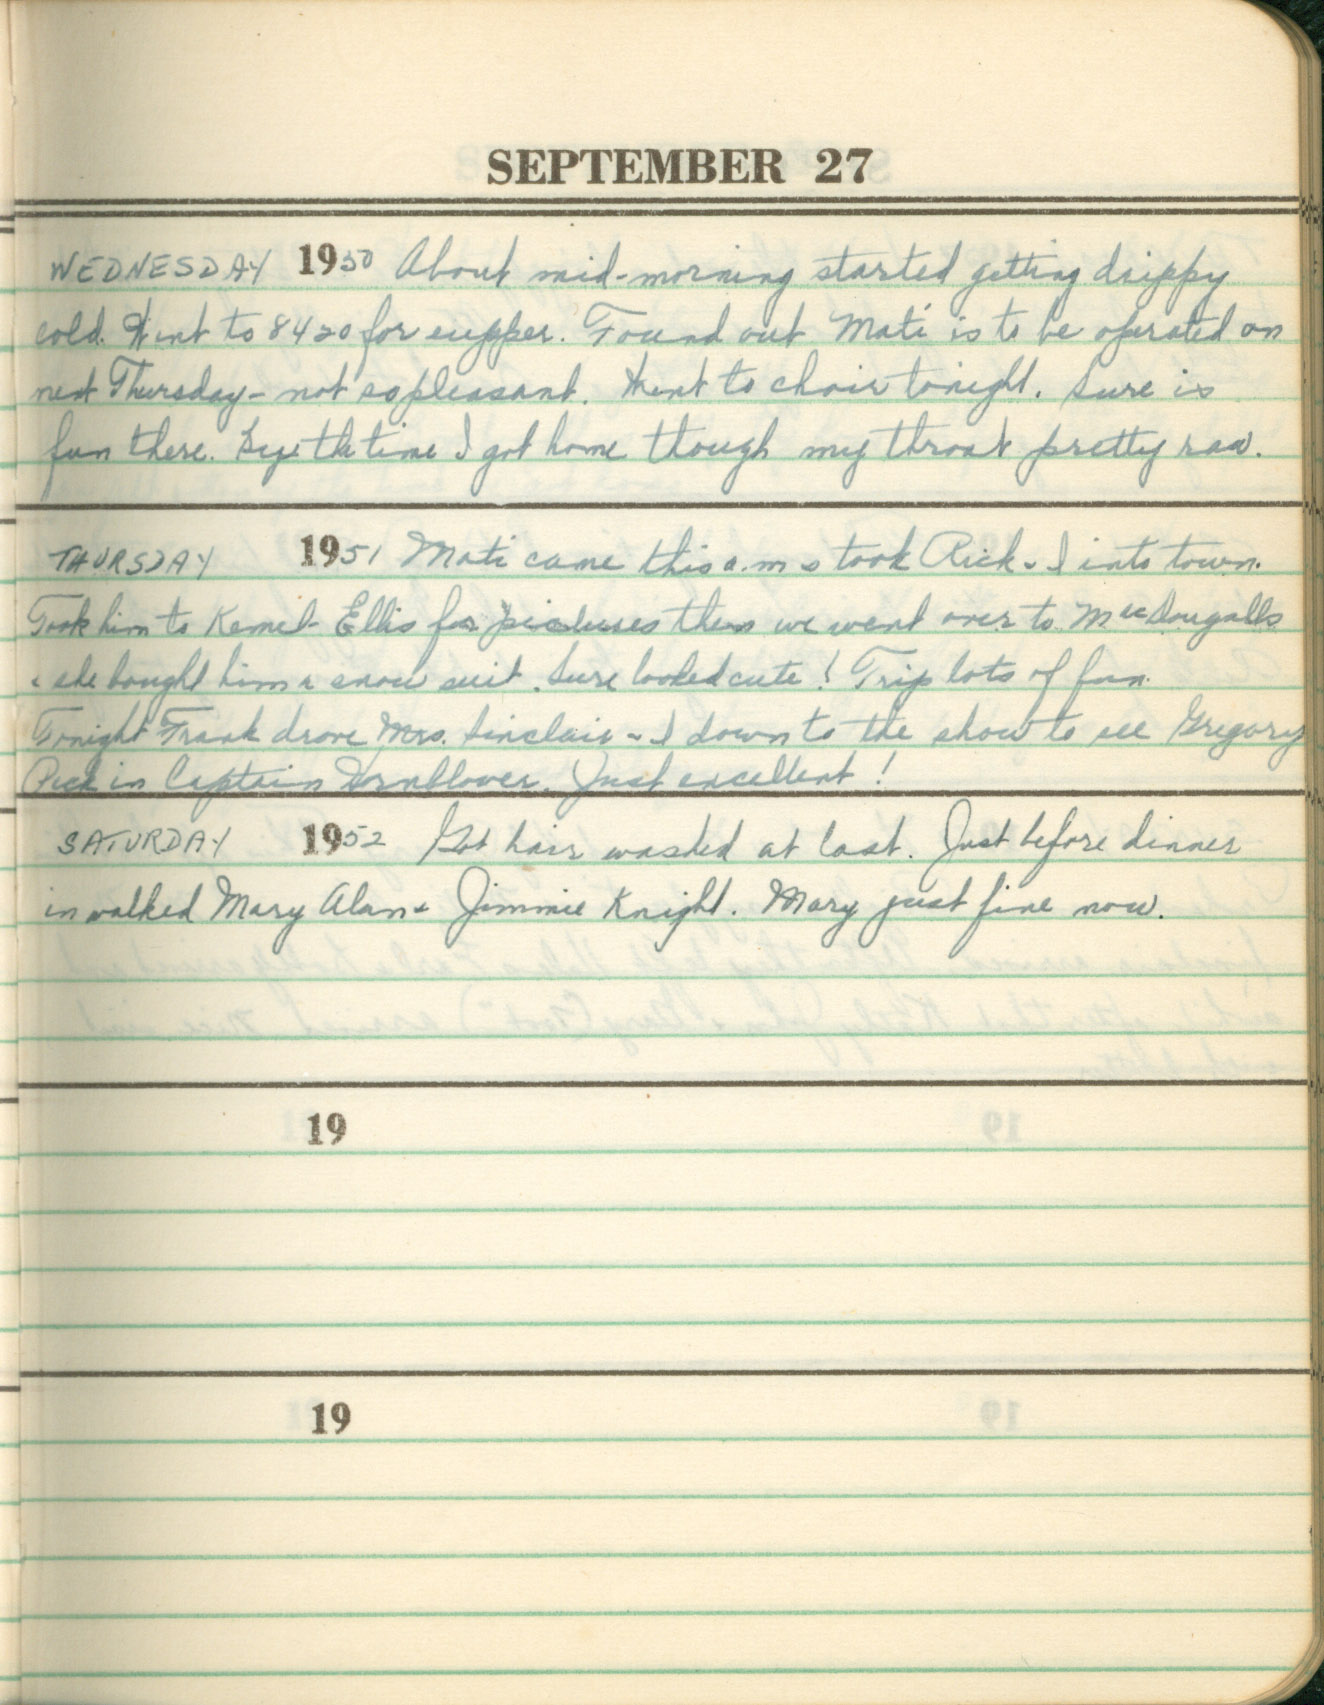 SEPTEMBER 27
WEDNESDAY 1950 About mid-morning started getting drippy
cold. Went to 8420 for supper. Found out Mati is to be operated on
next Thursday - not so pleasant. Went to choir tonight. Sure is
fun there. Bye the time I got home though my throat pretty raw.
THURSDAY 1951 Mati came this a.m & took Rick & I into town.
Took him to Kemel-Ellis for pictures then we went over to MacDougalls
& she bought him a snow suit. Sure looked cute! Trip lots of fun.
Tonight Frank drove Mrs. Sinclair & I down to the show to see Gregory
Peck in Captain Hornblower. Just excellent!
SATURDAY 1952 Got hair washed at last. Just before dinner
in walked Mary Alan & Jimmie Knight. Mary just fine now.
19
19